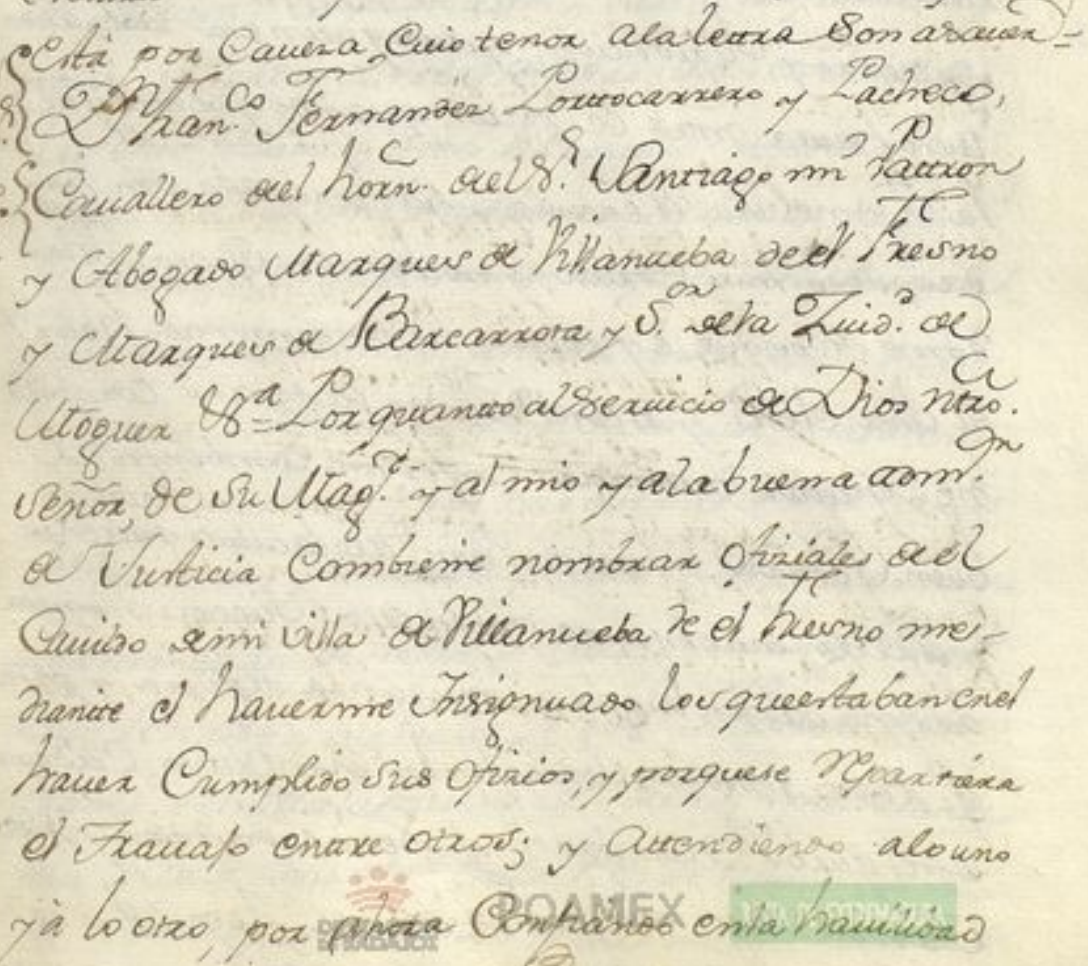 está por Caveza, Cuio tenor ala letra Son asauer=
Dn. Franco. Fernandez Porttocarrero y Pacheco,
Cauallero del horn. del Sr. Santiago mi Pattron
y Abogado Marques de Villanueba de el Fresno
y Marques de Barcarrota y Sor. dela Ziud. de
Moguer &a= Por quantto al Seruicio de Dios ntro.
señor, de Su Magd. y al mio y ala buena admon.
de Justicia Combiene nombrar ofiziales de el
Cauildo de mi villa de Villanueba de el Fresno me-
diante el hauerme Insignuado los que estaban en el
hauer Cumplido sus ofizios, y porque se Repartiera
el Trauajo enttre otros; y Attendiendo alo uno
y à lo otro, por ahora Confiando en la hauilidad
BOAMEX
DE BADAJOZ